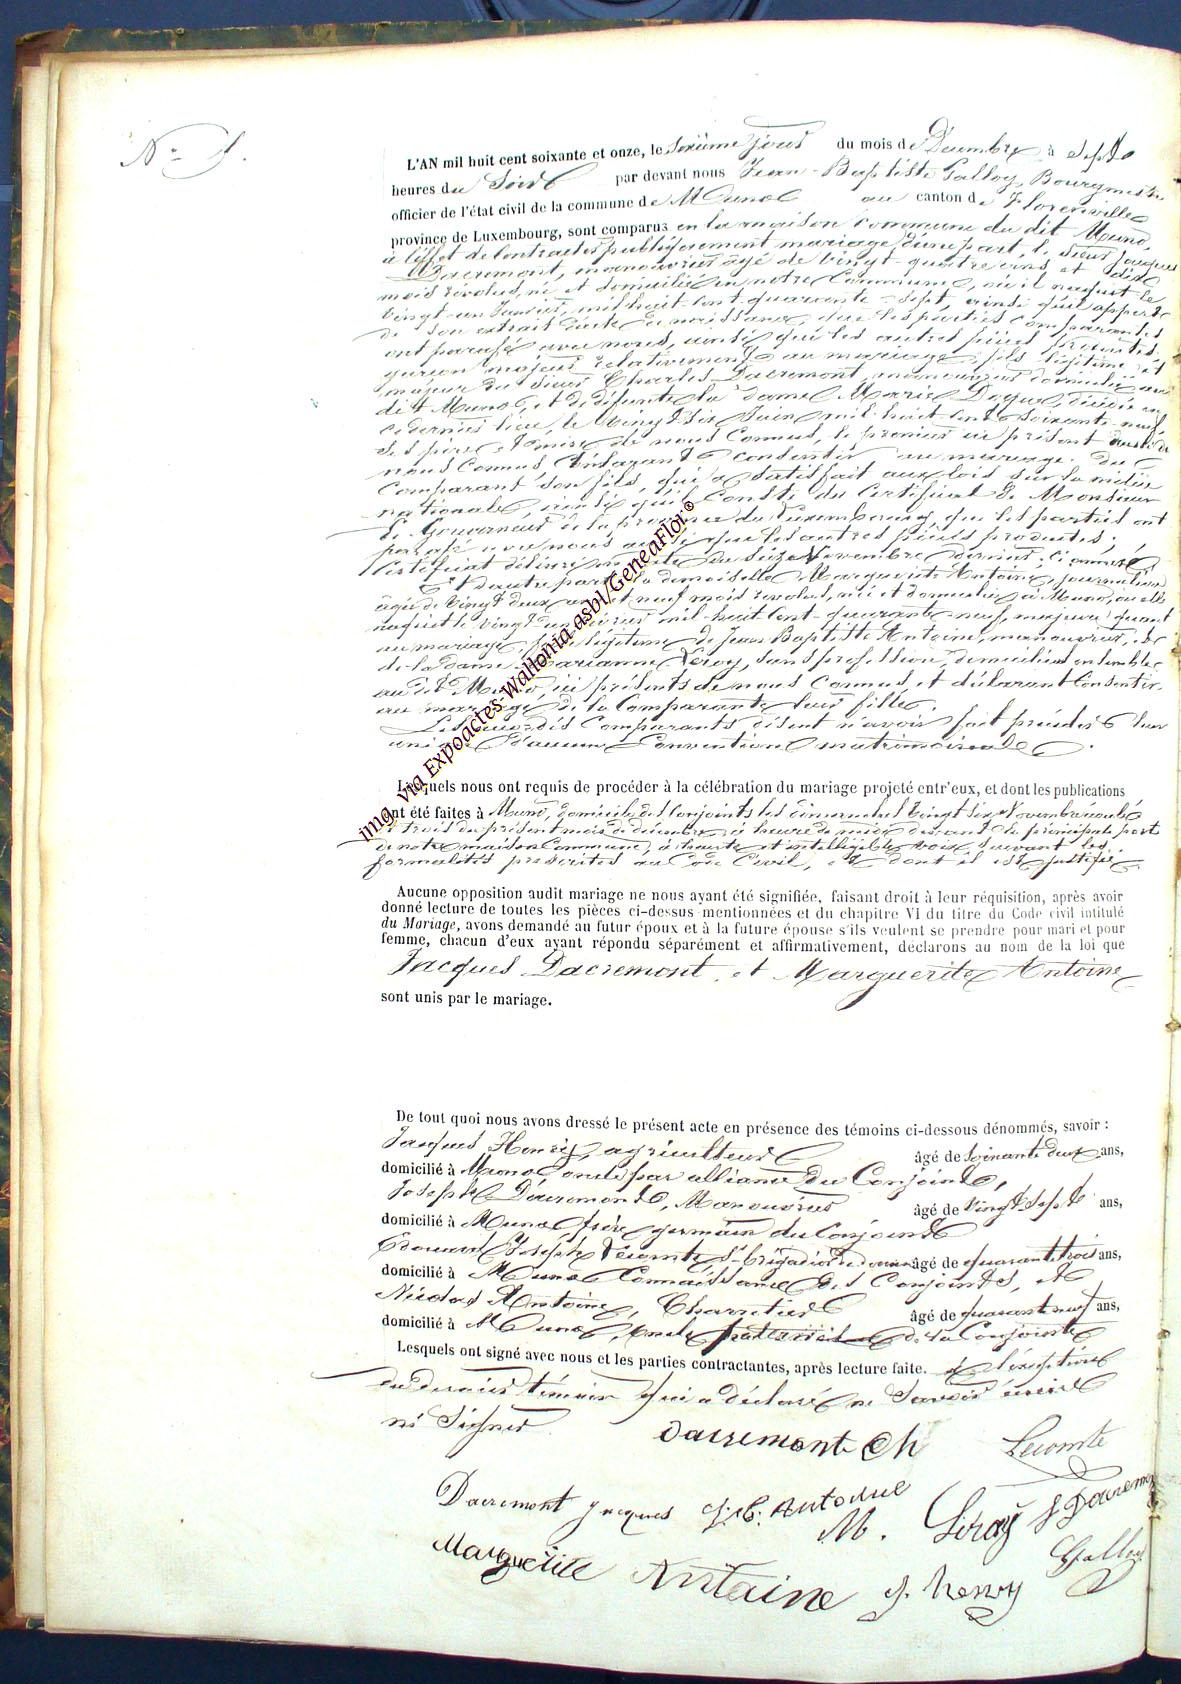 N°
L'AN mil huit cent soixante et onze, le seizième jour du mois de Décembre à sept
heures du Soir par devant nous Jean-Baptiste Galloy, Bourgmestre
officier de l'état civil de la commune de Muno au canton de Florenville
province de Luxembourg, sont comparus en la maison commune du dit Muno,
à l'effet de contracter publiquement mariage, d'une part, le sieur Jacques
Dacremont, manouvrier âgé de vingt-quatre ans et dix
mois révolus, né et domicilié en notre Commune, où il naquit le
vingt-un Janvier, mil huit cent quarante-sept, ainsi qu'il appert
de son extrait d'acte de naissance, que les parties comparantes
ont parafé avec nous, ainsi que les autres pièces produites,
garçon majeur relativement au mariage, fils légitime et
majeur du sieur Charles Dacremont, manouvrier domicilié
dit Muno, et de défunte la dame Marie décédée en
ce dernier lieu, le vingt-six Juin mil huit cent soixante-neuf,
ses père et mère de nous Connus, le premier ici présent
nous Connus déclarant consentir au mariage du
Comparant son fils, qui a satisfait aux lois sur la milice
nationale, ainsi qu'il Conste du Certificat de Monsieur
le Gouverneur de la province du Luxembourg, que les parties ont
parafé avec nous ainsi que les autres pièces produites,
Certificat délivré en date du seize Novembre dernier, ci annexé.
Et d'autre part, la demoiselle Marguerite Antoine, journalière
âgée de vingt deux ans et neuf mois révolus, née et domiciliée à Muno, où elle
naquit le vingt-un février mil-huit-cent-quarante-neuf, majeure quant
au mariage, fille légitime de Jean Baptiste Antoine, manouvrier, et
de la dame Marianne Leroy, sans profession, domiciliés ensemble
au dit Muno, ici présents de nous Connus, et déclarant Consentir
au mariage de la Comparante leur fille.
Lesquels dits Comparants disent n'avoir fait précéder leur
union d'aucune Convention matrimoniale.
Lesquels nous ont requis de procéder à la célébration du mariage projeté entr'eux, et dont les publications
ont été faites à Muno, domicile des Conjoints les dimanches vingt six Novembre écoulé
et trois du présent mois de décembre, à heure de midi devant la principale porte
de notre maison Commune, à haute et intelligible voix suivant les
formalités prescrites au Code Civil, et dont il est justifié.
Aucune opposition audit mariage ne nous ayant été signifiée, faisant droit à leur réquisition, après avoir
donné lecture de toutes les pièces ci-dessus mentionnées et du chapitre VI du titre du Code civil intitulé
du Mariage, avons demandé au futur époux et à la future épouse s'ils veulent se prendre pour mari et pour
femme, chacun d'eux ayant répondu séparément et affirmativement, déclarons au nom de la loi que
Jacques Dacremont, et Marguerite Antoine
sont unis par le mariage.
De tout quoi nous avons dressé le présent acte en présence des témoins ci-dessous dénommés, savoir :
Jacques Henry, agriculteur âgé de soixante deux ans,
domicilié à Muno oncle par alliance du Conjoint,
Joseph Dacremont, Manouvrier âgé de vingt sept ans,
domicilié à Muno frère germain du Conjoint
Edouard Joseph Lecomte, s/-brigadier de douane âgé de quarante trois ans,
domicilié à Muno Connaissance des Conjoints, et
Nicolas Antoine, Charretier âgé de quarante neuf ans,
domicilié à Muno, oncle paternel de la Conjointe
Lesquels ont signé avec nous et les parties contractantes, après lecture faite. à l'exception
du dernier témoin qui a déclaré ne savoir écrire
ni Signer
Dacremont Ch Lecomte
Dacremont Jacques J. B. Antoine M. Leroy J Dacremont
Marguerite Antoine J. henry Galloy
img. via Expoactes-Wallonia-asbl/GeneaFlor®